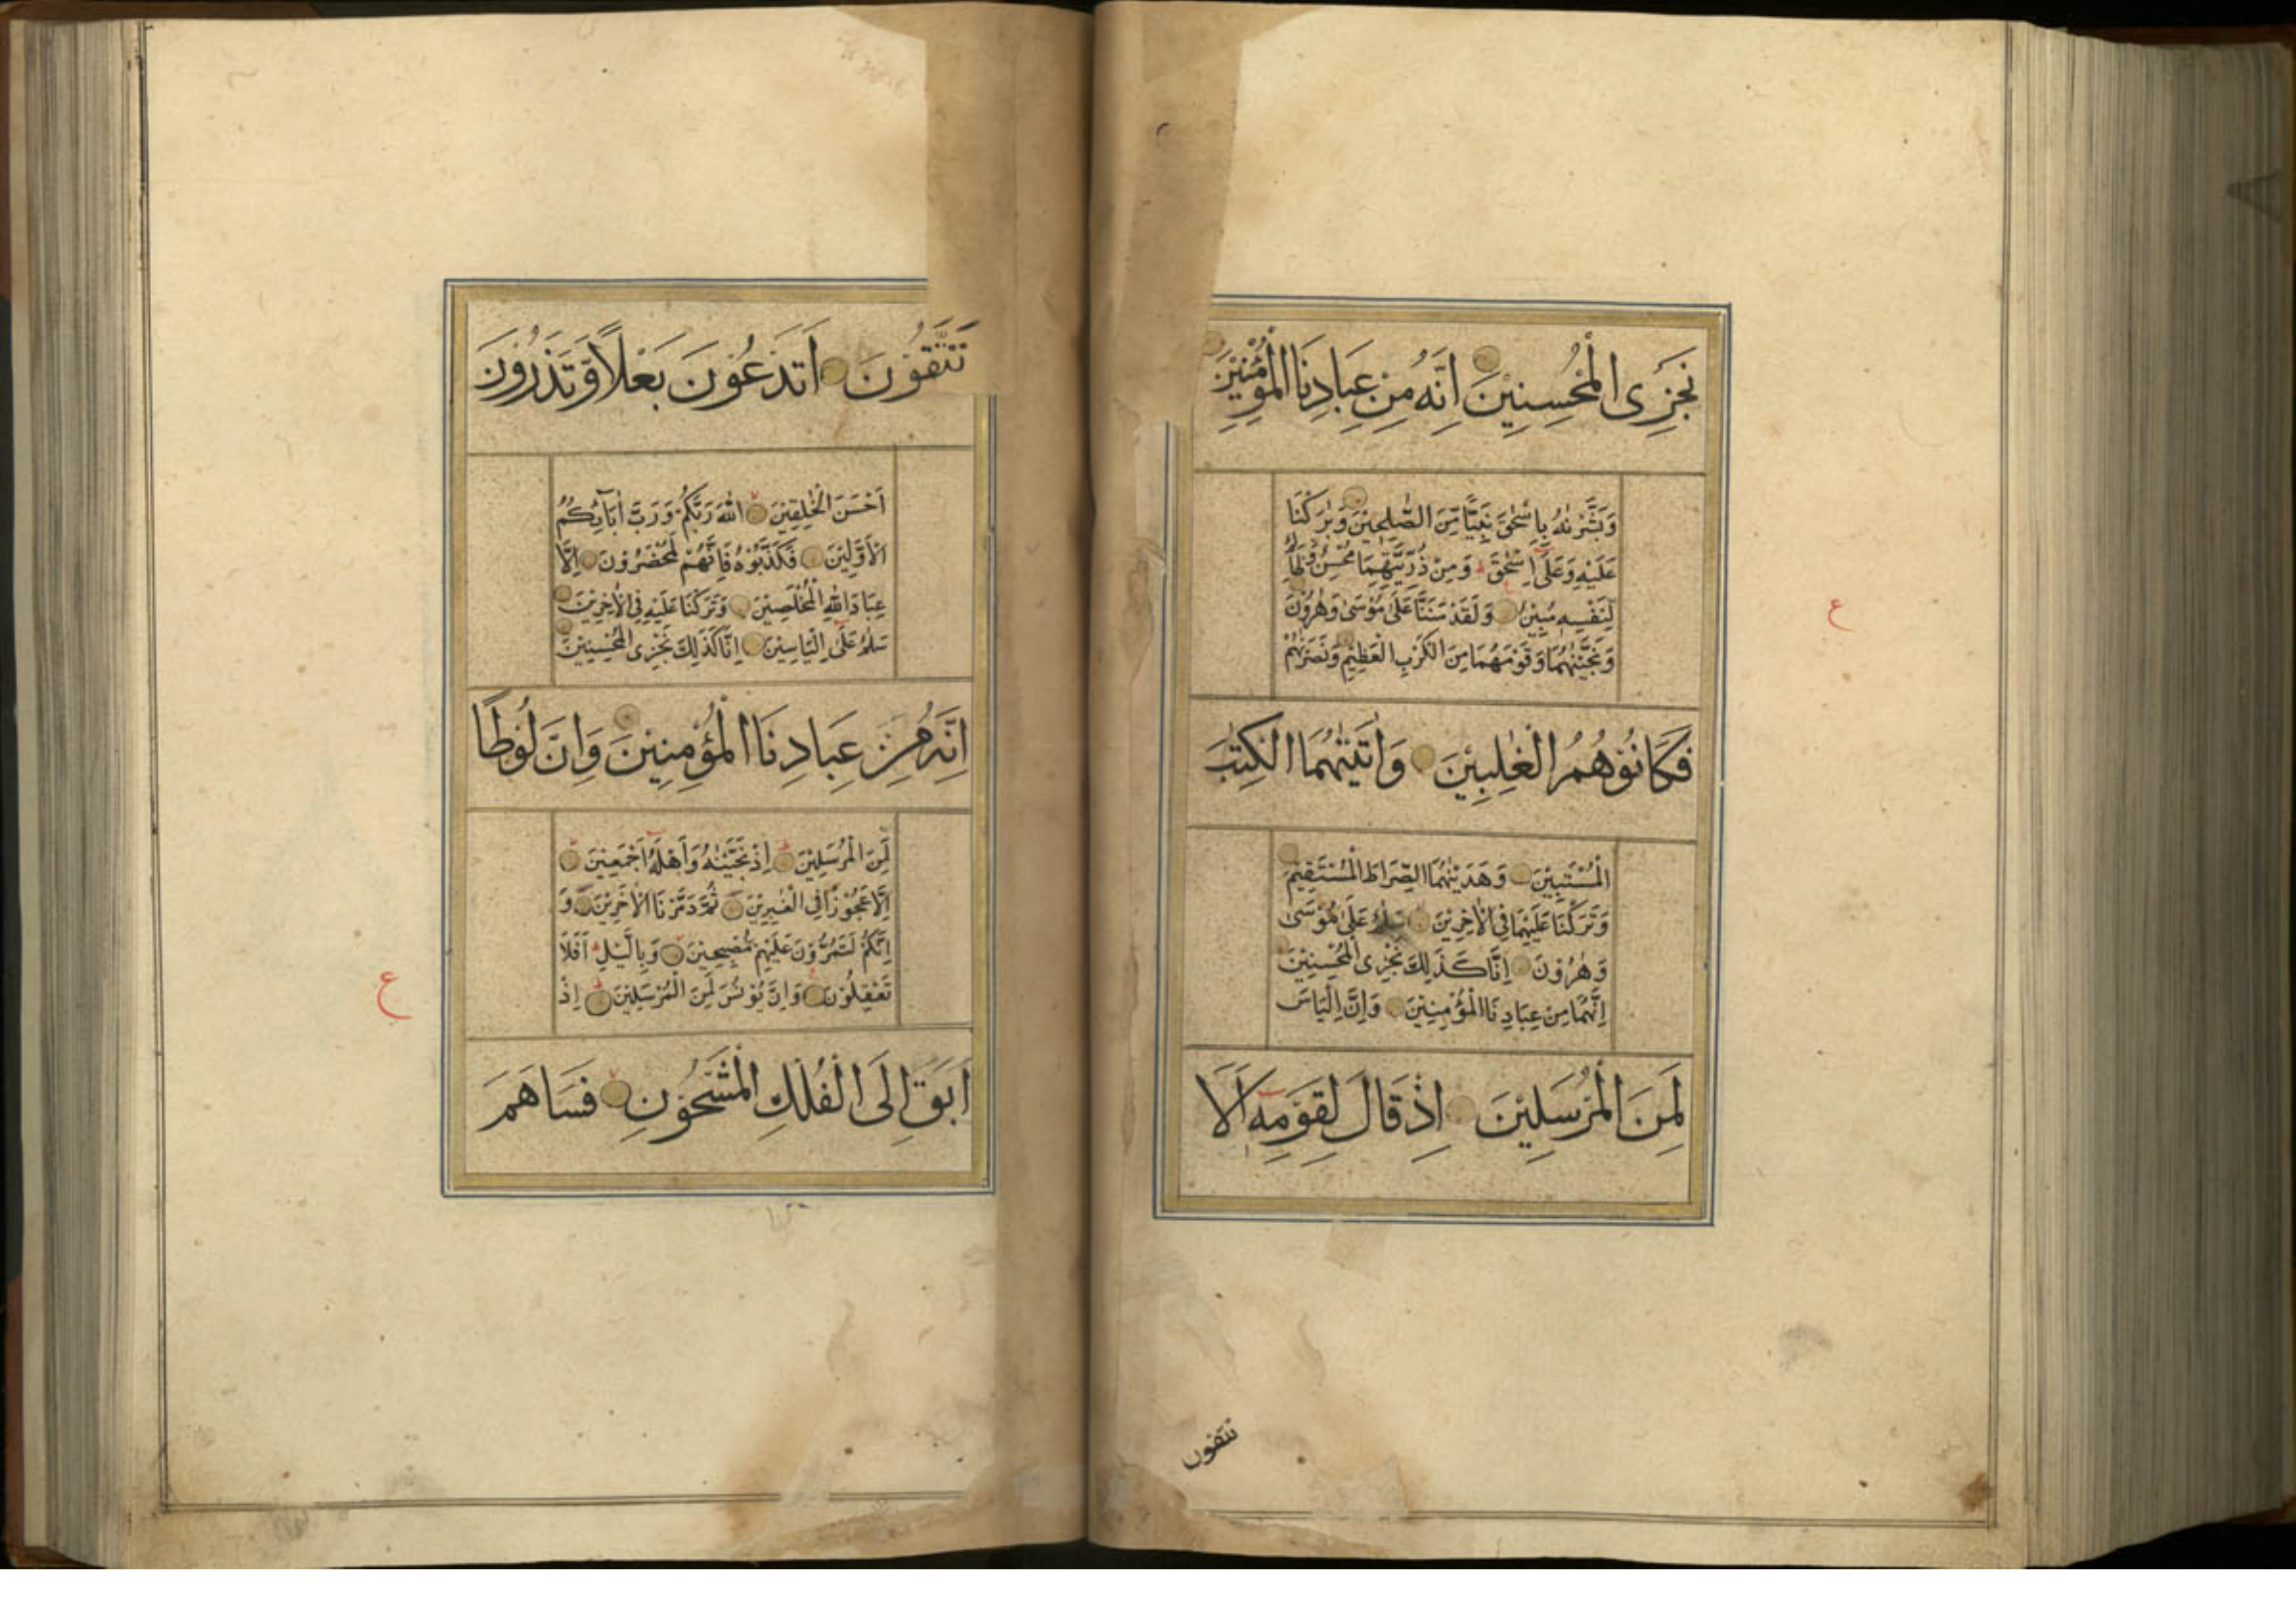 نَجْزِى الْمُحْسِنِيْنَ اِنَّهُ مِنْ عِبَادِنَا الْمُؤْمِنِيْنَ
وَبَشَّرْنٰهُ بِاِسْحٰقَ نَبِيًّا مِّنَ الصّٰلِحِيْنَ وَبٰرَكْنَا
عَلَيْهِ وَعَلٰٓى اِسْحٰقَ وَمِنْ ذُرِّيَّتِهِمَا مُحْسِنٌ وَّظَالِمٌ
لِّنَفْسِهٖ مُبِيْنٌ وَلَقَدْ مَنَنَّا عَلٰى مُوْسٰى وَهٰرُوْنَ
وَنَجَّيْنٰهُمَا وَقَوْمَهُمَا مِنَ الْكَرْبِ الْعَظِيْمِ وَنَصَرْنٰهُمْ
فَكَانُوْا هُمُ الْغٰلِبِيْنَ وَاٰتَيْنٰهُمَا الْكِتٰبَ
الْمُسْتَبِيْنَ وَهَدَيْنٰهُمَا الصِّرَاطَ الْمُسْتَقِيْمَ
وَتَرَكْنَا عَلَيْهِمَا فِى الْاٰخِرِيْنَ سَلٰمٌ عَلٰى مُوْسٰى
وَهٰرُوْنَ اِنَّا كَذٰلِكَ نَجْزِى الْمُحْسِنِيْنَ
اِنَّهُمَا مِنْ عِبَادِنَا الْمُؤْمِنِيْنَ وَاِنَّ اِلْيَاسَ
لَمِنَ الْمُرْسَلِيْنَ اِذْ قَالَ لِقَوْمِهٖٓ اَلَا
تتقون
ع
تَتَّقُوْنَ اَتَدْعُوْنَ بَعْلًا وَّتَذَرُوْنَ
اَحْسَنَ الْخٰلِقِيْنَ اللّٰهَ رَبَّكُمْ وَرَبَّ اٰبَآئِكُمُ
الْاَوَّلِيْنَ فَكَذَّبُوْهُ فَاِنَّهُمْ لَمُحْضَرُوْنَ اِلَّا
عِبَادَ اللّٰهِ الْمُخْلَصِيْنَ وَتَرَكْنَا عَلَيْهِ فِى الْاٰخِرِيْنَ
سَلٰمٌ عَلٰٓى اِلْيَاسِيْنَ اِنَّا كَذٰلِكَ نَجْزِى الْمُحْسِنِيْنَ
اِنَّهُ مِنْ عِبَادِنَا الْمُؤْمِنِيْنَ وَاِنَّ لُوْطًا
لَّمِنَ الْمُرْسَلِيْنَ اِذْ نَجَّيْنٰهُ وَاَهْلَهٗٓ اَجْمَعِيْنَ
اِلَّا عَجُوْزًا فِى الْغٰبِرِيْنَ ثُمَّ دَمَّرْنَا الْاٰخَرِيْنَ وَ
اِنَّكُمْ لَتَمُرُّوْنَ عَلَيْهِمْ مُّصْبِحِيْنَ وَبِالَّيْلِ اَفَلَا
تَعْقِلُوْنَ وَاِنَّ يُوْنُسَ لَمِنَ الْمُرْسَلِيْنَ اِذْ
اَبَقَ اِلَى الْفُلْكِ الْمَشْحُوْنِ فَسَاهَمَ
ع